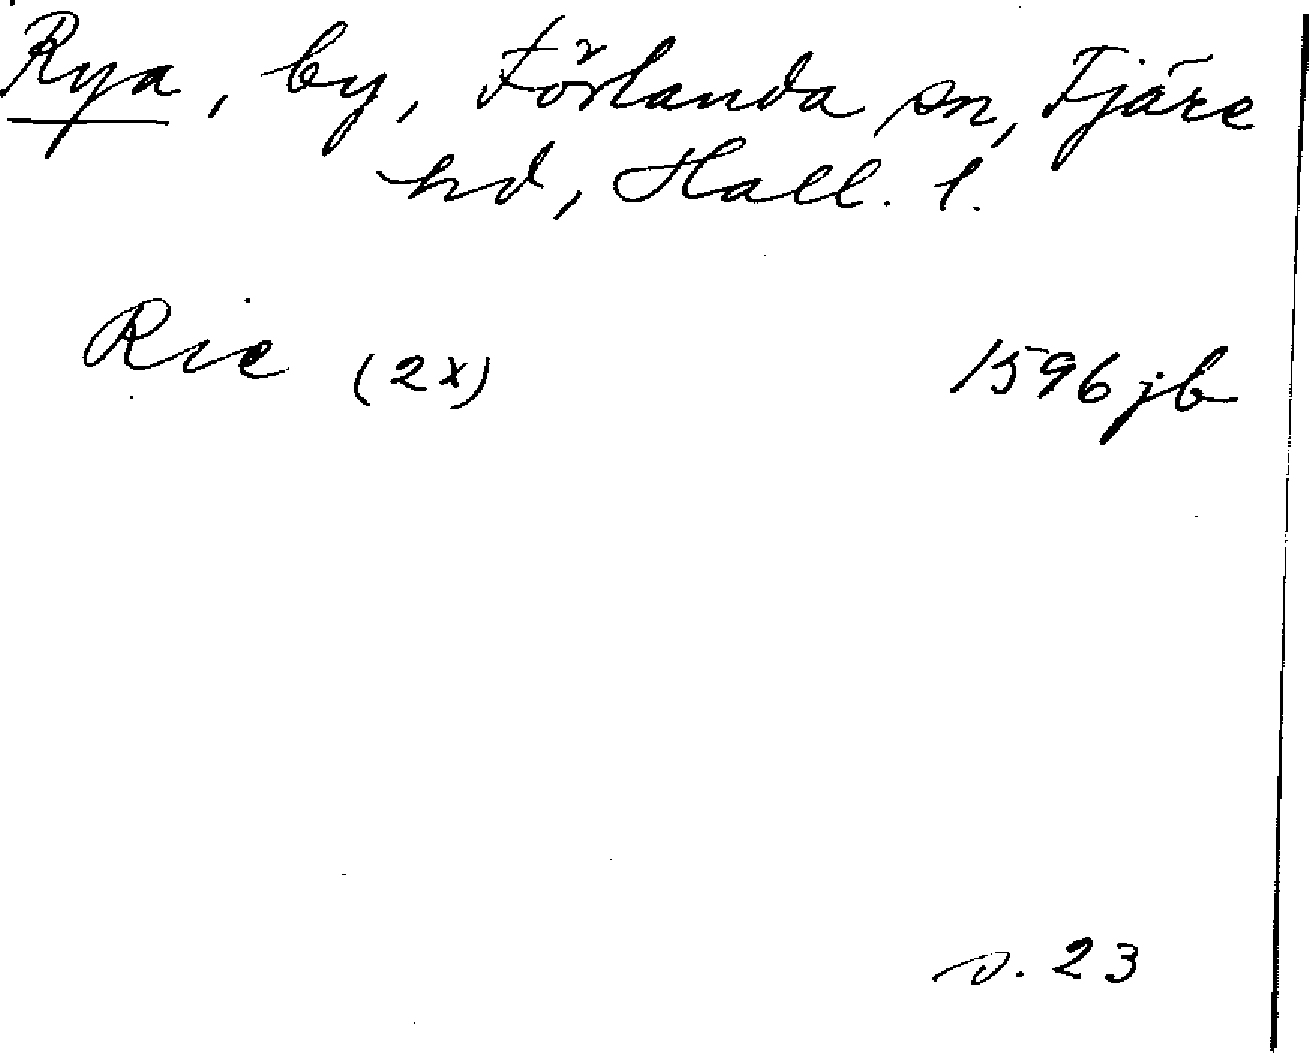 Rya, by, Förlanda sn, Fjäre
hd, Hall. l.
Rie (2x) 1596 jb
s. 23